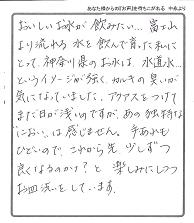 あなた様からの『お声』を待ちこがれる 中永より
おいしいお水が飲みたい… 富士山
より流れる水を飲んで育った私に
とって、神奈川県のお水は、水道水…
というイメージが強く、カルキの臭いが
気になっていました。アクアスをつけて
まだ日が浅いのですが、あの独特な
においは感じません。手あれも
ひどいので、これから先 少しずつ
良くなるのかナ？と 楽しみにしつつ
お皿洗いをしています。